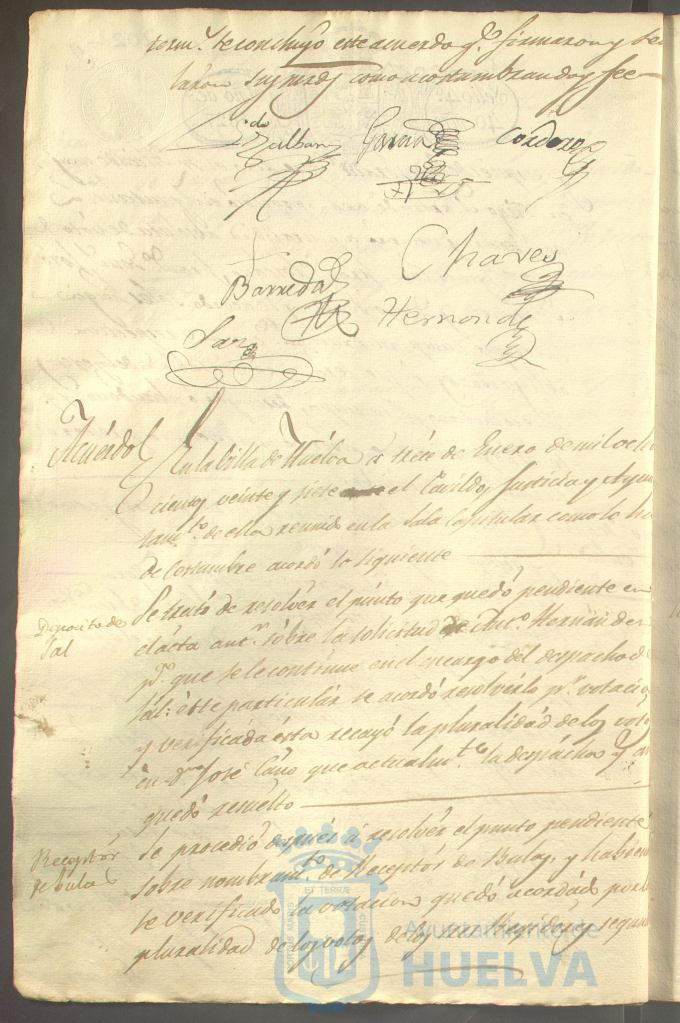 se concluyó este acuerdo q.e firmaron y
como acostumbran doy fee
Garcia
Cordero
Chaves
Barreda
Hernand
Sanz
Acuérdo
En la billa de Huelva á trece de Enero de mil ocho
cientos, veinte y siete el Cavildo, Justicia y Ayun
tam.to de ella reunido en la Sala Capitular como lo ha
de costumbre acordó lo siguiente
Deposito de
Sal
Se trató de resolvér el punto que quedó pendiente en
el ácta ant.r sóbre la solicitud de Ant.o Hernandez
p.a que se le continue en el encargo del despacho de
sál: éste particulár se acordó resolvérlo p.r votacio
y verificada ésta recayó la pluralidád de los votos
en Dn José Cano que actualm.te la despácha y así
quedó resuelto
Receptór
de bula
Se procedió después á resolvér el punto pendiente
sobre nombram.to de Receptór de Bulas, y habien
se verificado la votacion quedó acordado por la
pluralidad de los votos de los Regidores
ET TERRÆ
Ayuntamiento de
HUELVA